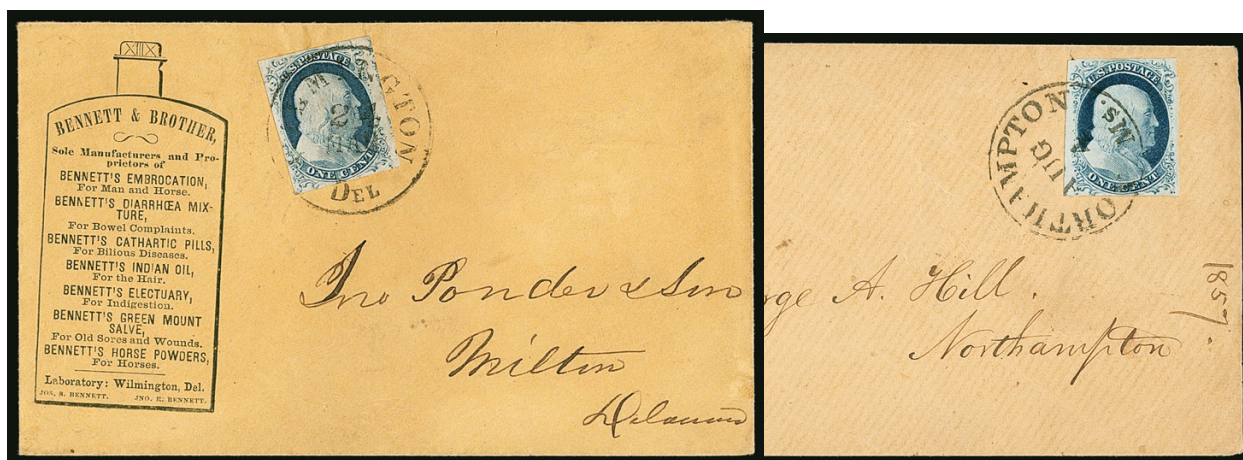 BENNETT & BROTHER,
Sole Manufacturers and Pro-
prietors of
BENNETT'S EMBROCATION,
For Man and Horse.
BENNETT'S DIARRHŒA MIX-
TURE,
For Bowel Complaints.
BENNETT'S CATHARTIC PILLS,
For Bilious Diseases.
BENNETT'S INDIAN OIL,
For the Hair.
BENNETT'S ELECTUARY,
For Indigestion.
BENNETT'S GREEN MOUNT
SALVE,
For Old Sores and Wounds.
BENNETT'S HORSE POWDERS,
For Horses.
Laboratory: Wilmington, Del.
JOS. S. BENNETT. JNO. E. BENNETT.
U.S. POSTAGE
ONE CENT
DEL
Jno Ponder & Son
Milton
Delaware
U.S. POSTAGE
ONE CENT
ORTHAMPTON Ms.
AUG
rge A. Hill.
Northampton
1857.